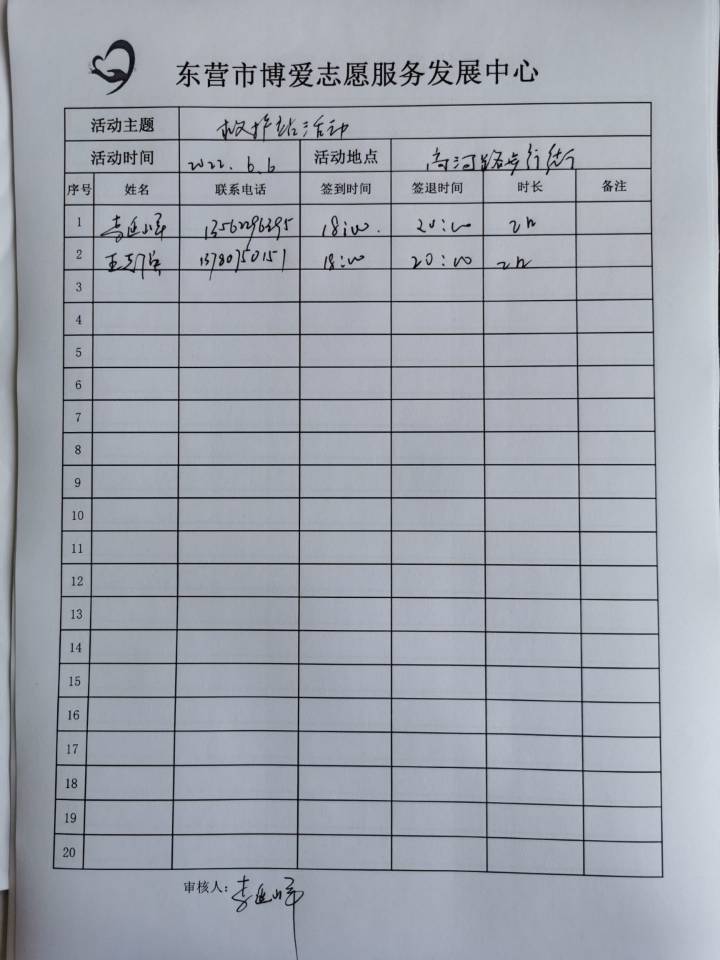 东营市博爱志愿服务发展中心
活动主题 救护站活动
活动时间 2022.6.6 活动地点 步行街
序号 姓名 联系电话 签到时间 签退时间 时长 备注
1 李延峰 13562296395 18:00. 20:00 2h
2 13780750151 18:00 20:00 2h
3
4
5
6
7
8
9
10
11
12
13
14
15
16
17
18
19
20
审核人:李延峰